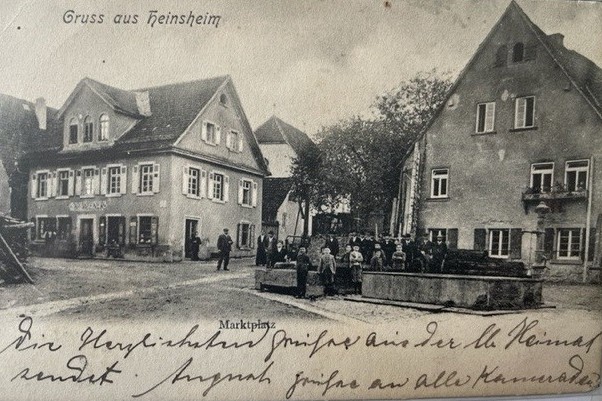 Gruss aus Heinsheim
Marktplatz
Die Herzlichsten Grüsse aus der Heimat
sendet August Grüsse an alle Kameraden